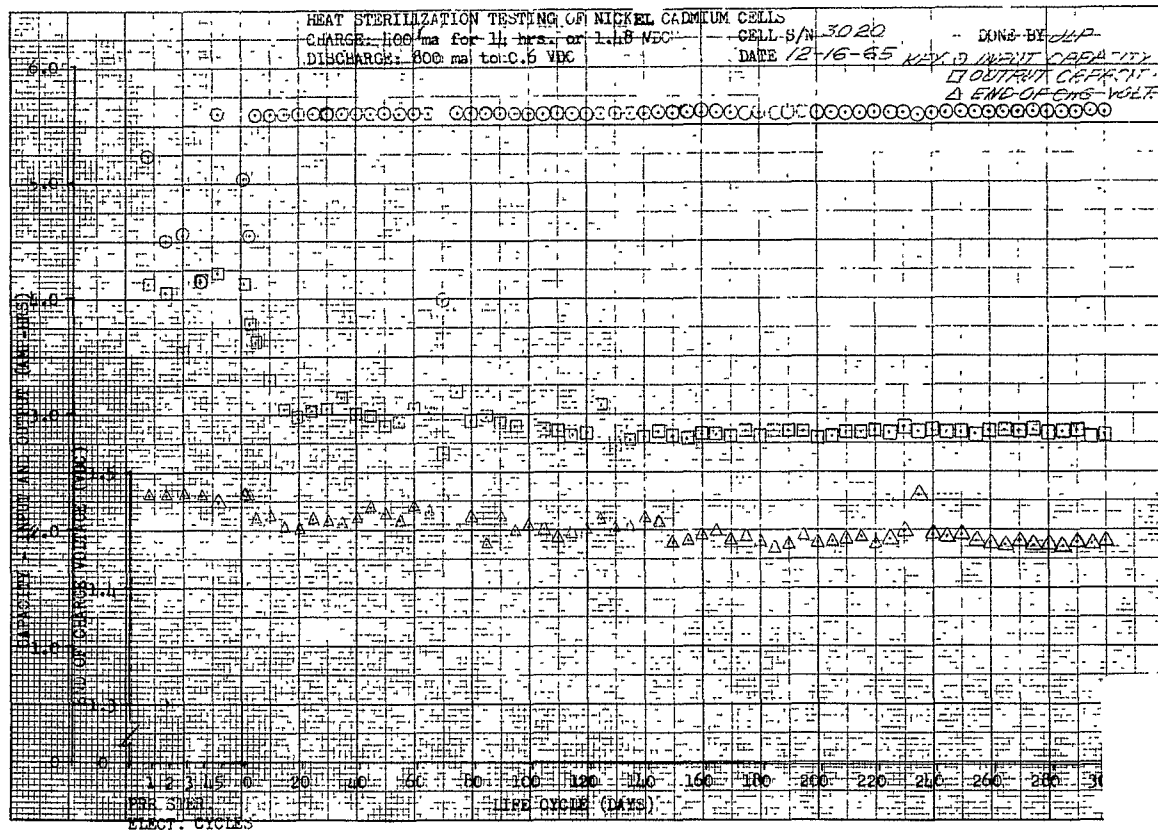 HEAT STERILIZATION TESTING OF NICKEL CADMIUM CELLS
CHARGE: 400 ma for 14 hrs. or 1.48 VDC
DISCHARGE: 800 ma to 0.5 VDC
CELL S/N 3020
DATE 12-16-65
DONE BY
KEY ⊙ INPUT CAPACITY
□ OUTPUT CAPACIT.
△ END-OF-CHG-VOLT.
CAPACITY - INPUT AND OUTPUT (AMP-HRS)
END OF CHARGE VOLTAGE (VDC)
6.0
5.0
4.0
3.0
2.0
1.0
0
1.5
1.4
1.3
0
1 2 3 4 5 0 20 40 60 80 100 120 140 160 180 200 220 240 260 280 30
PRE STER.
ELECT. CYCLES
LIFE CYCLE (DAYS)